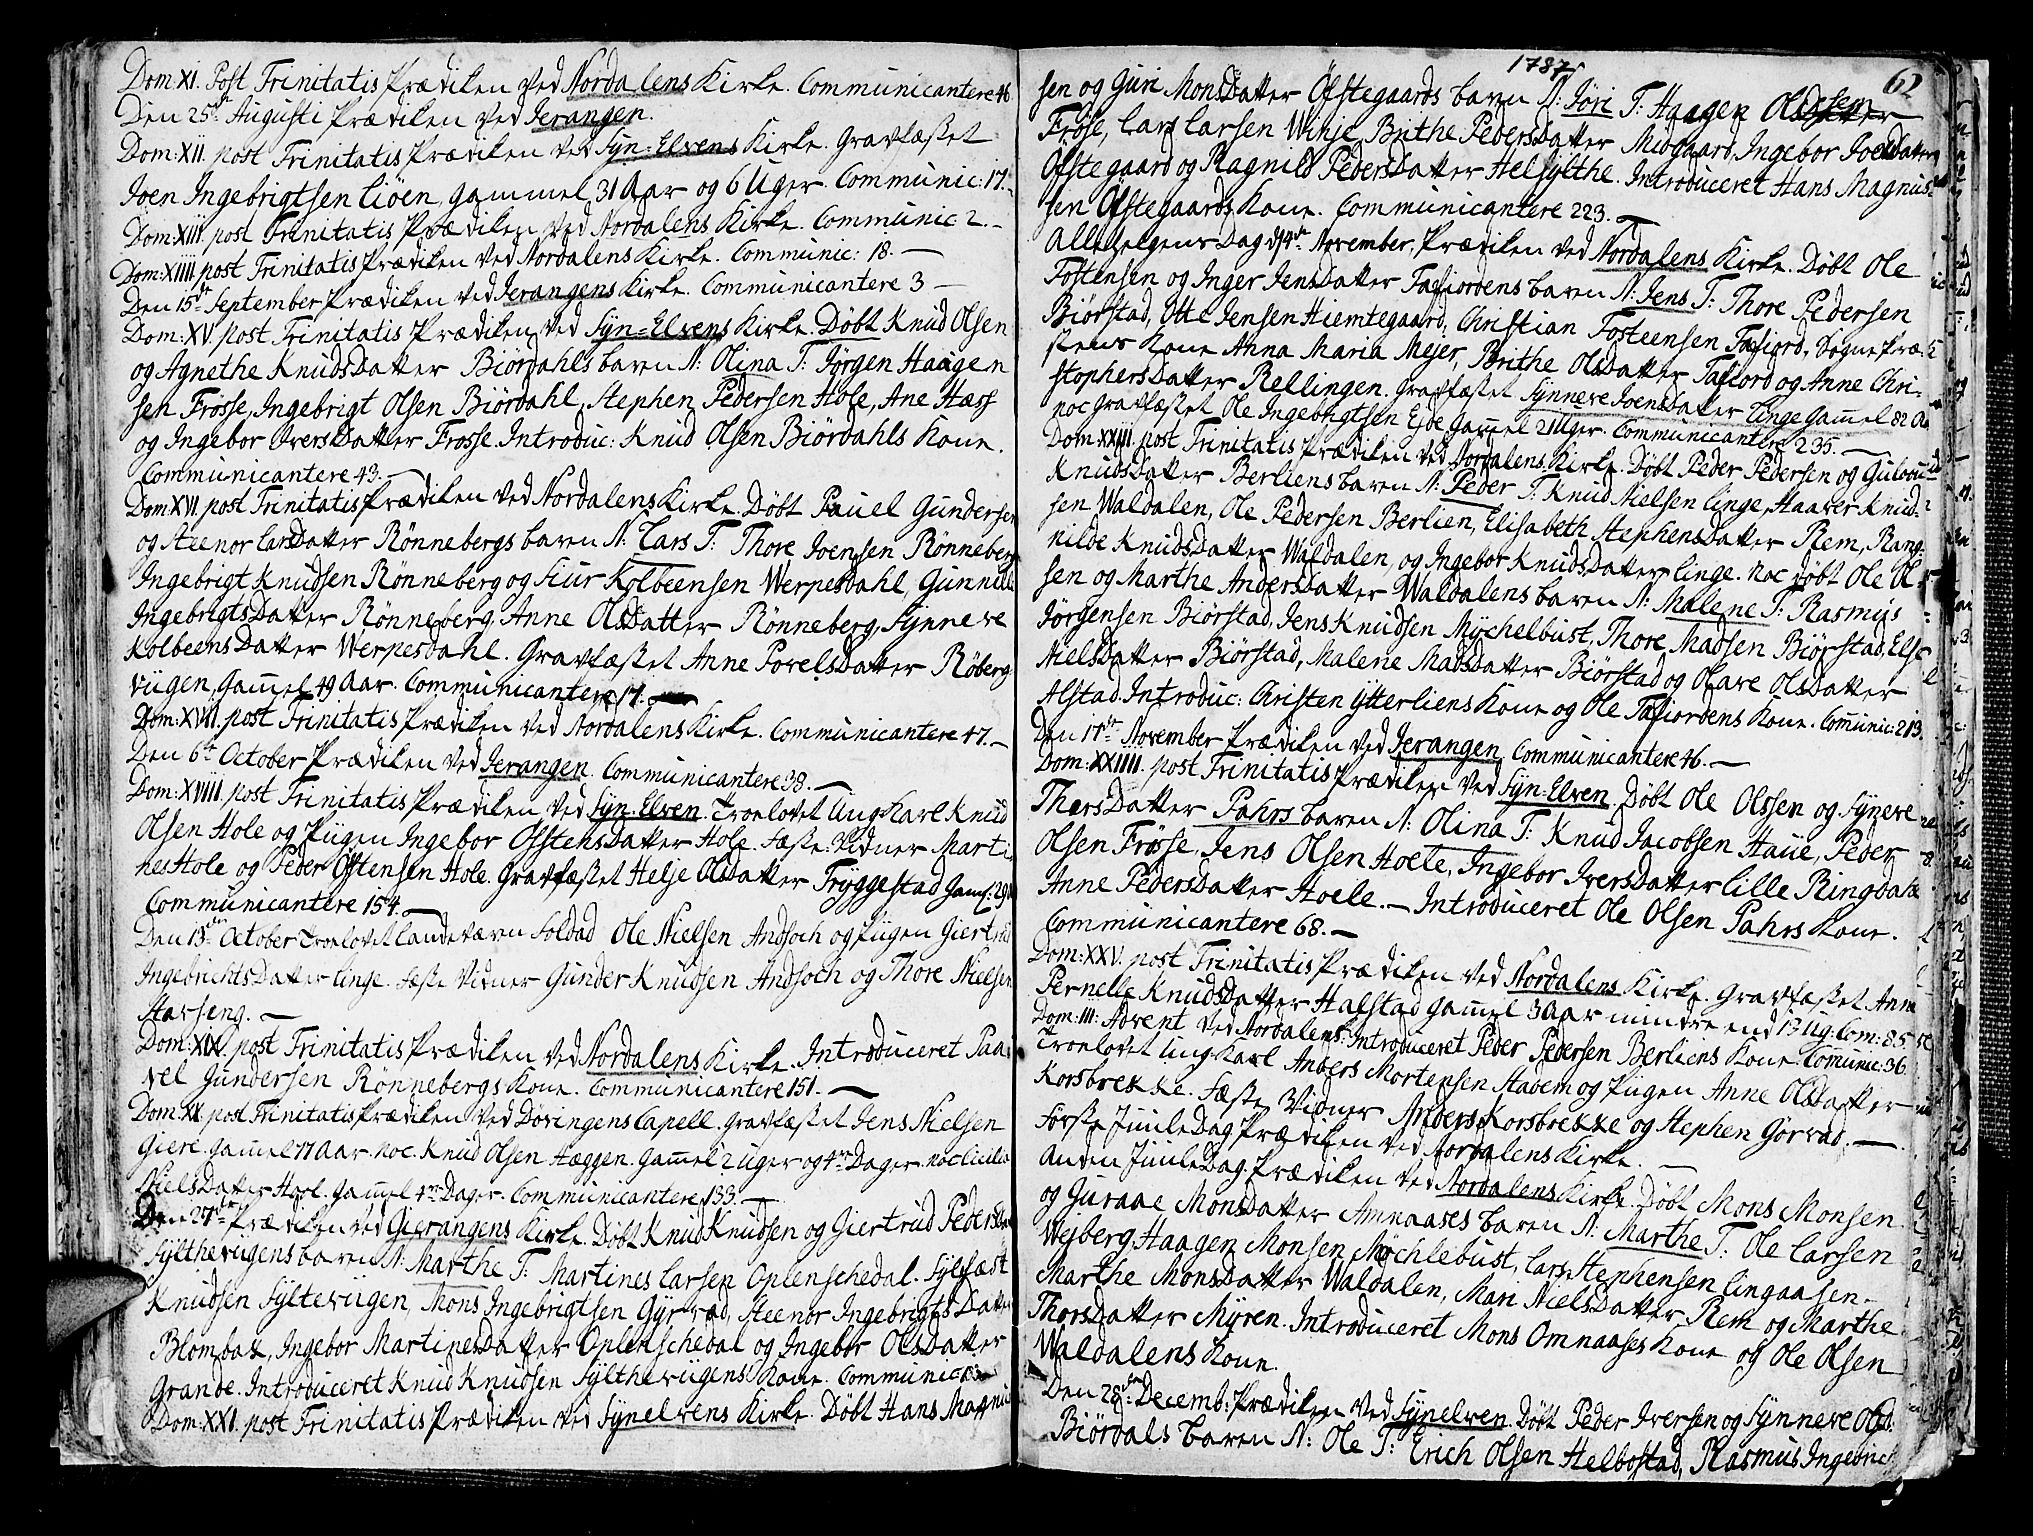 Dom: XI. Post Trinitatis Prædiken ved Nordalens Kirke. Communicantere 46
Den 25de Augusti Prædiken ved Jerangen.
Dom: XII. post Trinitatis Prædiken ved Syn=Elvens Kirke. Gravfæstet
Joen Ingebrigtsen Liöen, gammel 31 Aar og 6 Uger. Communic: 17.
Dom: XIII. post Trinitatis Prædiken ved Nordalens Kirke. Communic 2.
Dom: XIIII post Trinitatis Prædiken ved Nordalens Kirke. Communic: 18.
Den 15de September Prædiken ved Jerangens Kirke. Communicantere 3
Dom: XV. post Trinitatis Prædiken ved Syn=Elvens Kirke. Döbt Knud Olsen
og Agnethe Knuds Datter Biördahls baren N: Olina T: Jörgen Haagen
sen Frösse, Ingebrigt Olsen Biördahl, Stephen Pedersen Hole, Ane Hæss
og Ingebor Ivers Datter Frosse. Introduc: Knud Olsen Biördahls Kone.
Communicantere 43.
Dom: XVI. post Trinitatis Prædiken ved Nordalens Kirke. Döbt Pauel Gundersen
og Steenor Lars Datter Rönnebergs baren N: Lars T: Thore Joensen Rönneberg
Ingebrigt Knudsen Rönneberg og Siur Kolbeensen Werpesdahl, Gunnilde
Ingebrigts Datter Rönneberg, Anne Olsdatter Rönneberg, Synneve
Kolbeens Datter Werpesdahl. Gravfæstet Anne Povelsdatter Röberg
viigen, gamel 49 Aar. Communicantere 17.
Dom: XVII. post Trinitatis Prædiken ved Nordalens Kirke. Communicantere 47.
Den 6te October Prædiken ved Jerangen. Communicantere 38.
Dom: XVIII. post Trinitatis Prædiken ved Syn=Elven. Troelovet Ungkarl Knud
Olsen Hole og Pigen Ingebor Ofstens Datter Hole. Fæste Vidner Marti
nes Hole og Peder Ofstensen Hole. Gravfæstet Helje Olsdatter Tryggestad gaml: 29
Communicantere 154.
Den 13de October Troelovet Landeværn Soldad Ole Nielsen Andsoch og Pigen Giertrud
Ingebrichts Datter Linge. Fæste Vidner Gunder Knudsen Andsoch og Thore Nielsen
Harseng.
Dom: XIX. post Trinitatis Prædiken ved Nordalens Kirke. Introduceret Paa
vel Gundersen Rönnebergs Kone. Communicantere 151.
Dom: XX. post Trinitatis Prædiken ved Dövingens Capell. Gravfæstet Jens Nielsen
Giere. gamel 17 Aar. noc. Knud Olsen Hæggen. gamel 2 Uger og 4re Dager. noc
Niels Datter Horl. gamel 4re Dager. Communicantere 133.
Den 27de Prædiken ved Gierangens Kirke. Döbt Knud Knudsen og Giertrud Peders
Sylthevigens baren N: Marthe T: Martines Larsen Oplenschedal. Sylfæst
Knudsen Syltevigen, Mons Ingebrigtsen Gyrvad, Steenor Ingebrigts Datter
Blombak, Ingebor Martinesdatter Oplenschedal og Ingebor Olsdatter
Grande. Introduceret Knud Knudsen Sylthevigens Kone. Communic
Dom: XXI. post Trinitatis Prædiken ved Synelvens Kirke. Döbt Hans Magnu
1787 62
sen og Guri Monsdatter Ofstegaards baren N: Jöri T: Haagen
Fröse, Lars Larsen Winje, Brithe Pedersdatter Midgaard, Ingebor Joensdatter
Ofstegaard og Ragnild Pedersdatter Helsylthe. Introduceret Hans Magnus
sen Ofstegaards Kone. Communicantere 223.
Allehelgens Dag November, Prædiken ved Nordalens Kirke. Döbt Ole
Fostensen og Inger Jensdatter Tafiordens baren N: Jens T: Thore Pedersen
Biörstad, Otte Jensen Hiemtegaard, Christian Fosteensen Tafiord, Sogne Præ
stens Kone Anna Maria Mejer, Brithe Olsdatter Tafiord og Anne Chri
stophers Datter Rellingen. Gravfæstet Synnere Joensdatter Linge gamel 82 Aa
noc gravfæstet Ole Ingebrigtsen Ejde gamel 2 Uger. Communicantere 235.
Dom: XXIII. post Trinitatis Prædiken ved Nordalens Kirke. Döbt Peder Pedersen og
Knudsdatter Berliens baren N: Peder T: Knud Nielsen Linge, Haaver Knud
sen Waldalen, Ole Pedersen Berlien, Elisabeth Stephensdatter Rem, Rang
nilde Knudsdatter Waldalen, og Ingebor Knudsdatter Linge. noc döbt Ole Ol
sen og Marthe Andersdatter Waldalens baren N: Malene T: Rasmus
Jörgensen Biörstad, Jens Knudsen Mychelbust, Thore Madsen Biörstad, Else
Nielsdatter Biörstad, Malene Madsdatter Biörstad og Olave Olsdatter
Alstad. Introduc: Christen Ytterliens Kone og Ole Tafiordens Kone. Comunic: 213.
Den 17de November Prædiken ved Jerangen. Communicantere 46.
Dom: XXIIII. post Trinitatis Prædiken ved Syn=Elven. Döbt Ole Olssen og Synere
Thors Datter Pahrs baren N: Olina T: Knud Jacobsen Haue, Peder
Olsen Frösse, Jens Olsen Hoele, Ingebor Iversdatter Lille Ringdahl
Anne Pedersdatter Hoele. Introduceret Ole Olsen Pahrs Kone.
Communicantere 68.
Dom: XXV. post Trinitatis Prædiken ved Nordalens Kirke. Gravfæstet Anna
Pernelle Knudsdatter Halstad gamel 3 Aar mindre end 13 Ug: Com: 85
Dom: III: Advent ved Nordalens. Introduceret Peder Pedersen Berliens Kone. Comunic: 36
Troelovet Ungkarl Anders Mortensen Stavem og Pigen Anne Olsdatter
Korsbrekke. Fæste Vidner Anders Korsbrekke og Stephen Görvad.
Förste Juule Dag Prædiken ved Nordalens Kirke.
Anden Juule Dag Prædiken ved Nordalens Kirke. Döbt Mons Monsen
og Guraae Monsdatter Amnaases baren N: Marthe T: Ole Larsen
Weiberg, Haagen Monsen Möchlebust, Lars Stephensen Lingaasen
Marthe Monsdatter Waldalen, Mari Nielsdatter Rem og Marthe
Thorsdatter Myren. Introduceret Mons Omnaases Kone og Ole Olsen
Waldalens Kone.
Den 28de Decemb: Prædiken ved Synelven. Döbt Peder Iversen og Synneve Olsd.
Biördals baren N: Ole T: Erich Olsen Helbostad, Rasmus Ingebric